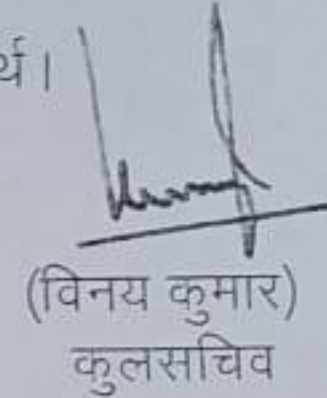 र्थ।
(विनय कुमार)
कुलसचिव